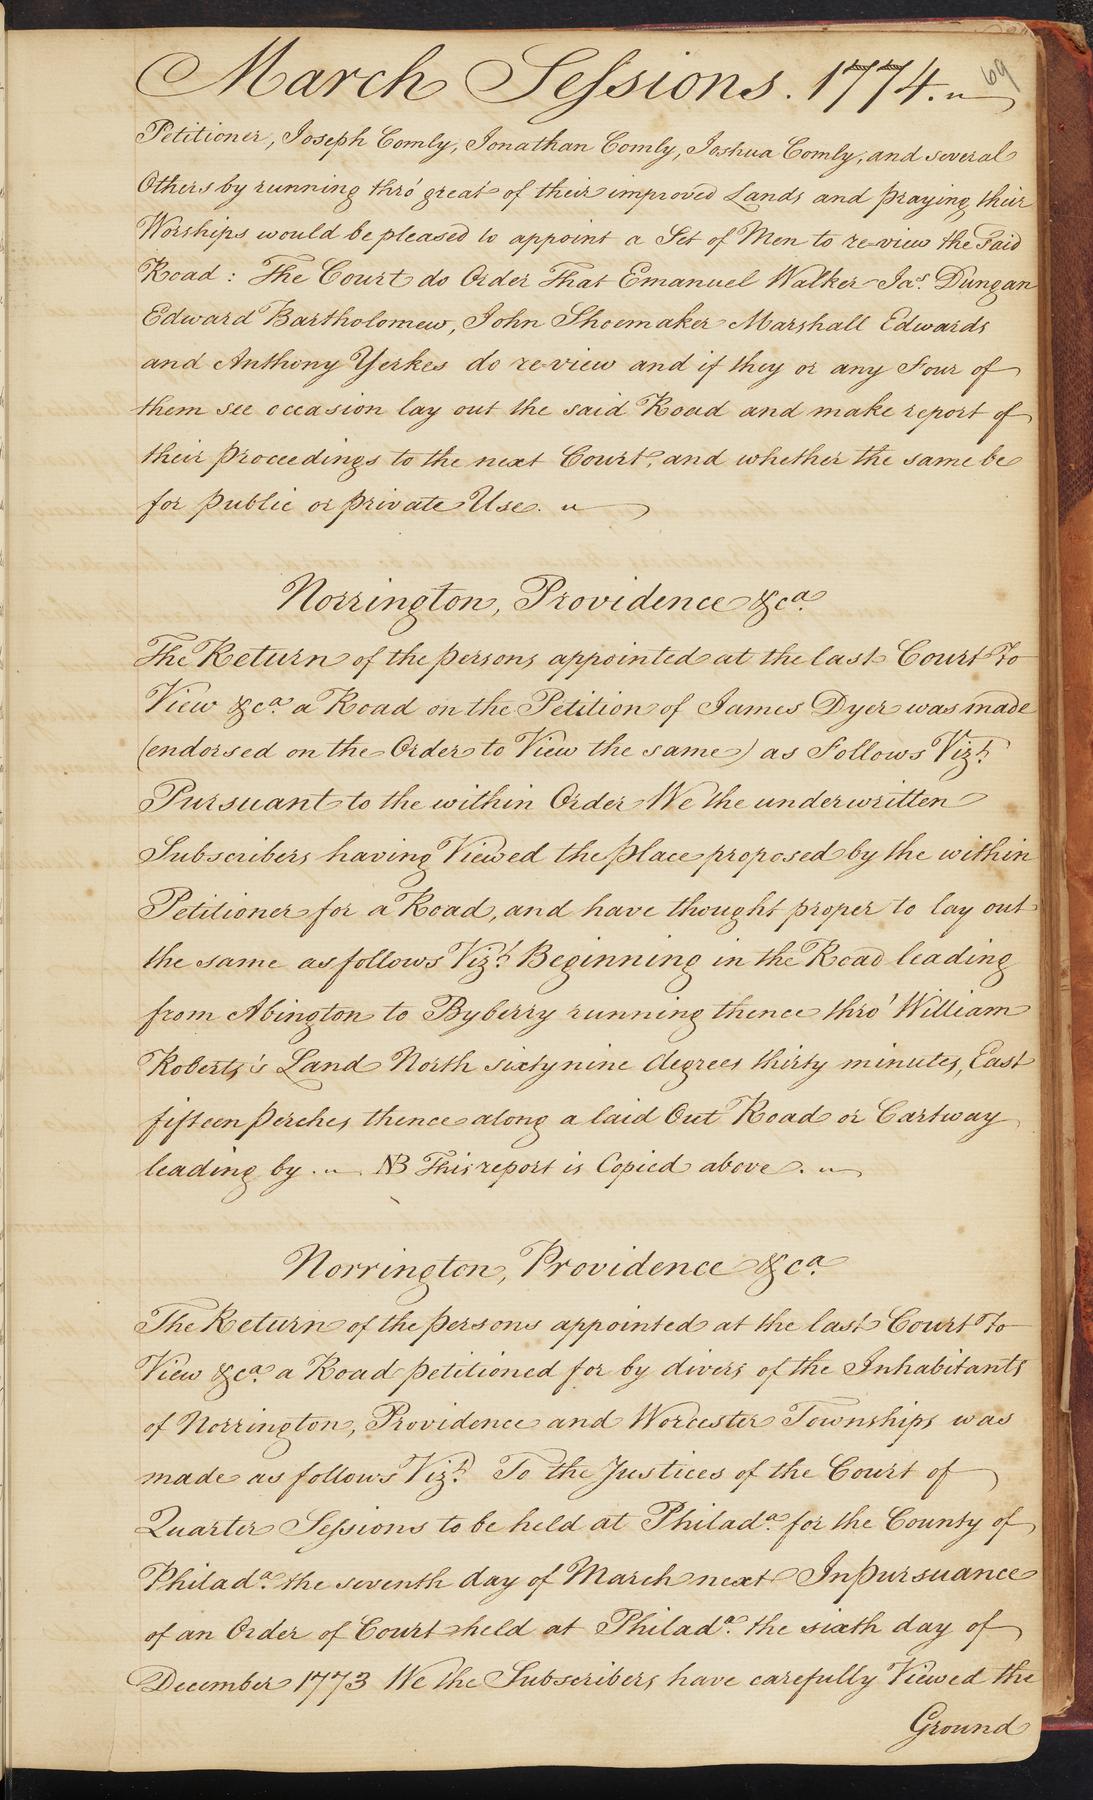 March Sessions. 1774.
69
Petitioner, Joseph Comly, Jonathan Comly, Joshua Comly, and several
Others by running thro' great of their improved Lands and praying their
Worships would be pleased to appoint a Set of Men to re-view the Said
Road : The Court do Order That Emanuel Walker Jas. Dungan
Edward Bartholomew, John Shoemaker Marshall Edwards
and Anthony Yerkes do re-view and if they or any Four of
them see occasion lay out the said Road and make report of
their proceedings to the next Court, and whether the same be
for public or private Use.
Norrington, Providence &ca.
The Return of the persons appointed at the last Court To
View &ca. a Road on the Petition of James Dyer was made
(endorsed on the Order to View the same) as Follows Vizt.
Pursuant to the within Order We the underwritten
Subscribers having Viewed the place proposed by the within
Petitioner for a Road, and have thought proper to lay out
the same as follows Vizt. Beginning in the Road leading
from Abington to Byberry running thence thro' William
Roberts's Land North sixty nine degrees thirty minutes, East
fifteen perches thence along a laid Out Road or Cartway
leading by . NB This report is Copied above.
Norrington, Providence &ca.
The Return of the persons appointed at the last Court To
View &ca. a Road petitioned for by divers of the Inhabitants
of Norrington, Providence and Worcester Townships was
made as follows Vizt. To the Justices of the Court of
Quarter Sessions to be held at Philada. for the County of
Philada. the seventh day of March next In pursuance
of an Order of Court held at Philada. the sixth day of
December 1773 We the Subscribers have carefully Viewed the
Ground